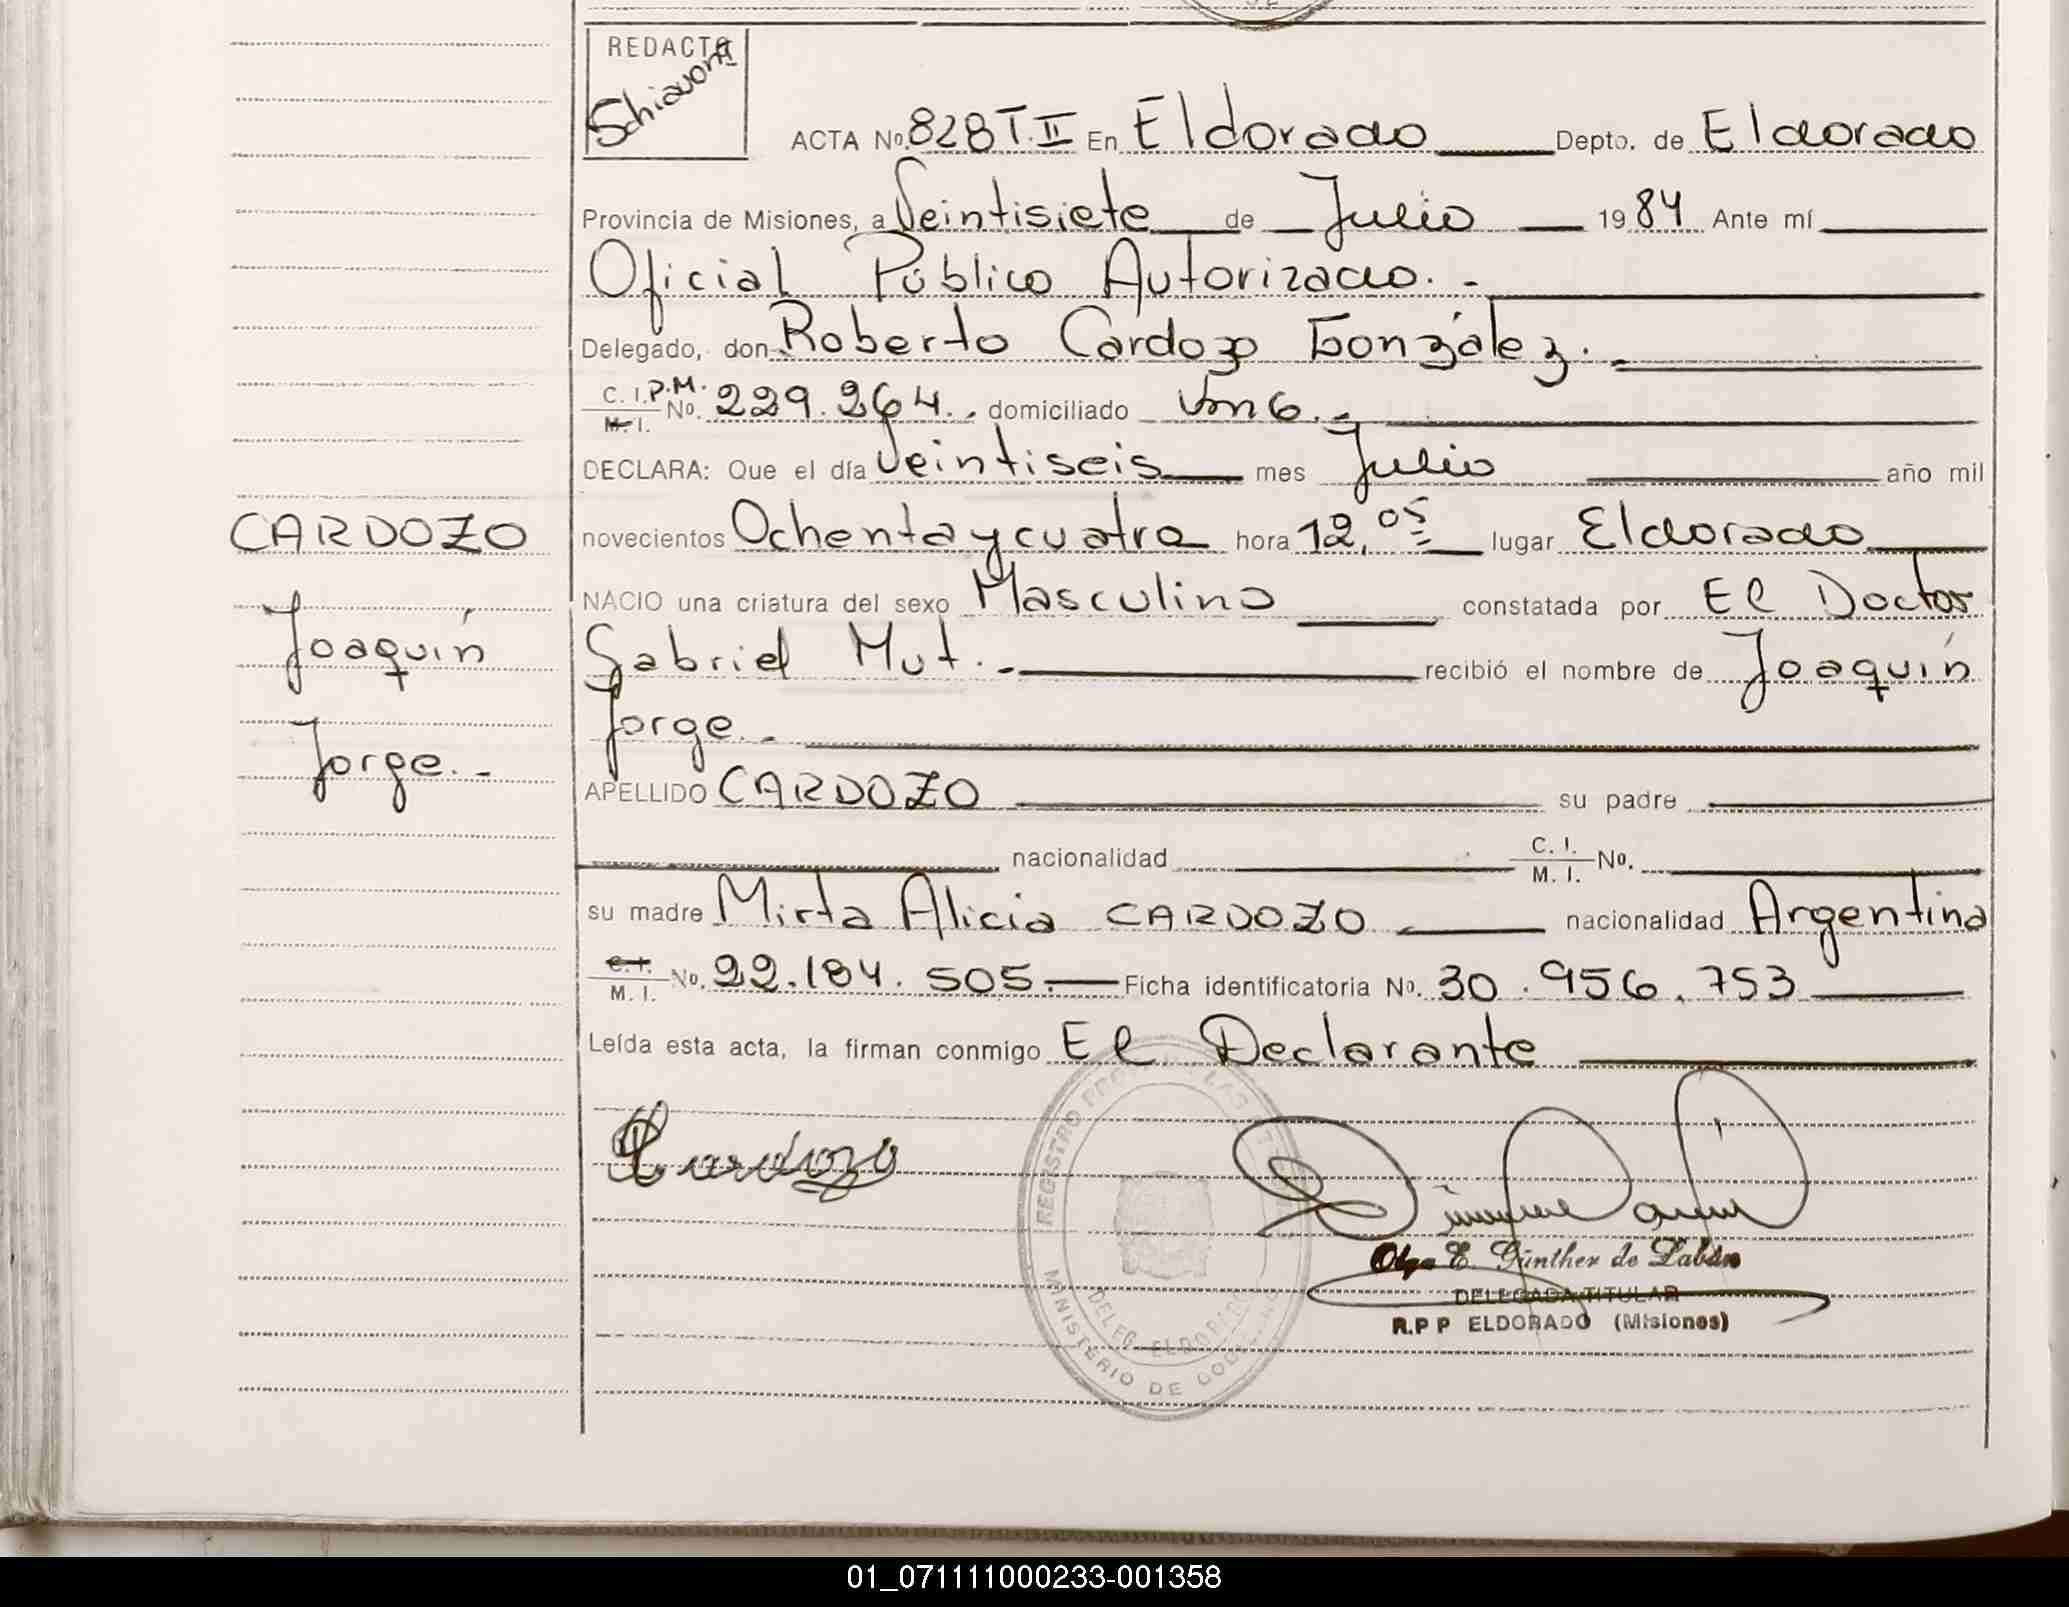 REDACTO
Schiavoni
ACTA Nº. 828 T. II En Eldorado Depto. de Eldorado
Provincia de Misiones, a Veintisiete de Julio 1984 Ante mí
Oficial Público Autorizado. -
Delegado, don Roberto Cardozo González. -
C. I. P.M.
M. I. Nº. 229.264. - domiciliado
DECLARA: Que el día Veintiseis mes Julio año mil
novecientos Ochenta y cuatro hora 12,05 lugar Eldorado
NACIO una criatura del sexo Masculino constatada por El Doctor
Gabriel Mut. - recibió el nombre de Joaquín
Jorge. -
APELLIDO CARDOZO su padre
nacionalidad C. I.
M. I. Nº.
su madre Mirta Alicia CARDOZO nacionalidad Argentina
C. I.
M. I. Nº. 22.184.505. - Ficha identificatoria Nº. 30.956.753
Leída esta acta, la firman conmigo El Declarante
CARDOZO
Joaquín
Jorge. -
Cardozo
REGISTRO PRO LAS
DELEG. ELDORADO
MINISTERIO DE GOBIERNO
Olga E. Günther de
DELEGADA TITULAR
R.P P ELDORADO (Misiones)
01_071111000233-001358